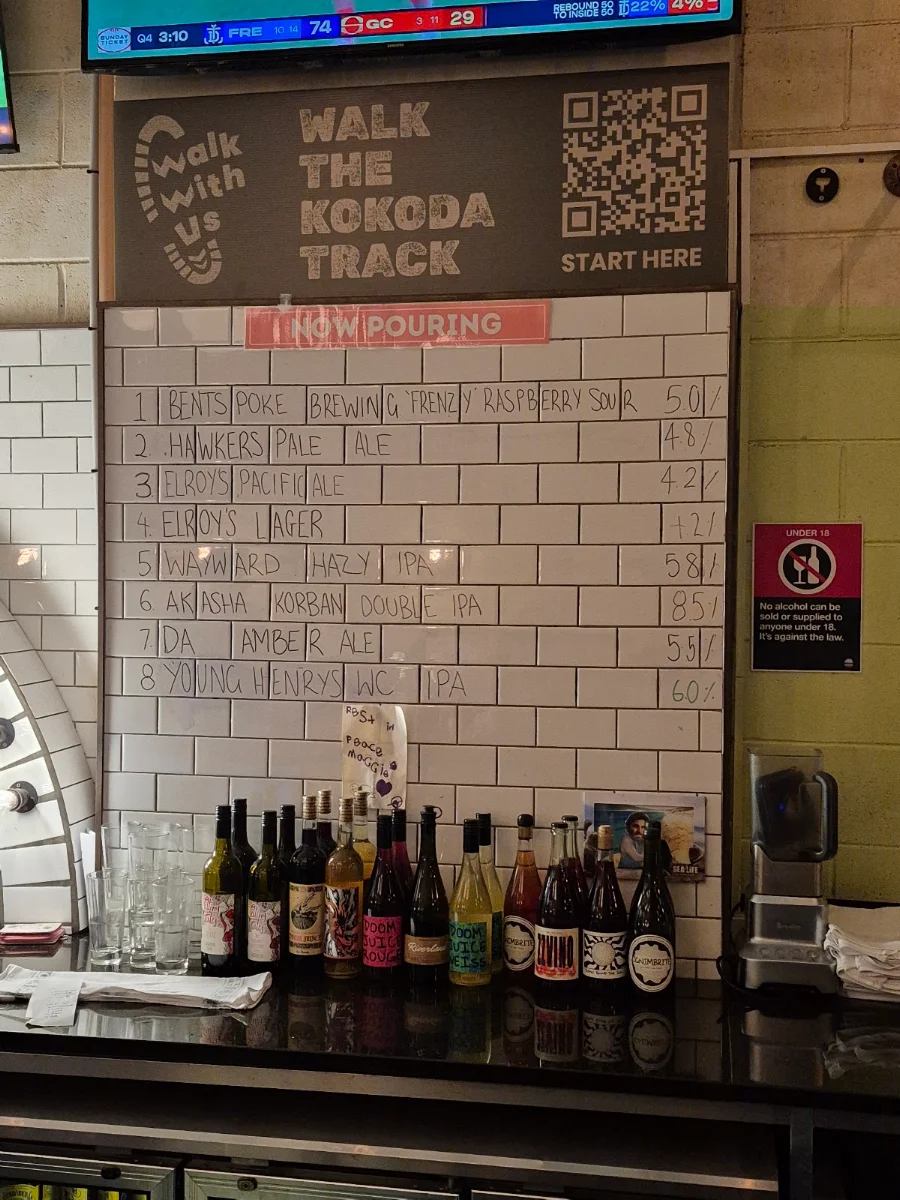 SUNDAY TICKET Q4 3:10 FRE 10 14 74 GC 3 11 29 REBOUND 50 TO INSIDE 50 22% 4%
Walk
With
Us
WALK
THE
KOKODA
TRACK
START HERE
NOW POURING
1 BENTS POKE BREWING 'FRENZY' RASPBERRY SOUR 5.0%
2. HAWKERS PALE ALE 4.8%
3 ELROY'S PACIFIC ALE 4.2%
4. ELROY'S LAGER
5 WAYWARD HAZY IPA 5.8%
6. AKASHA KORBAN DOUBLE IPA 8.5%
7. DA AMBER ALE 5.5%
8 YOUNG HENRYS WC IPA 6.0%
in
Peace
Maggie
UNDER 18
No alcohol can be
sold or supplied to
anyone under 18.
It's against the law.
DOOM
JUICE
ROUGE
Riverland
DOOM
JUICE
WEISS